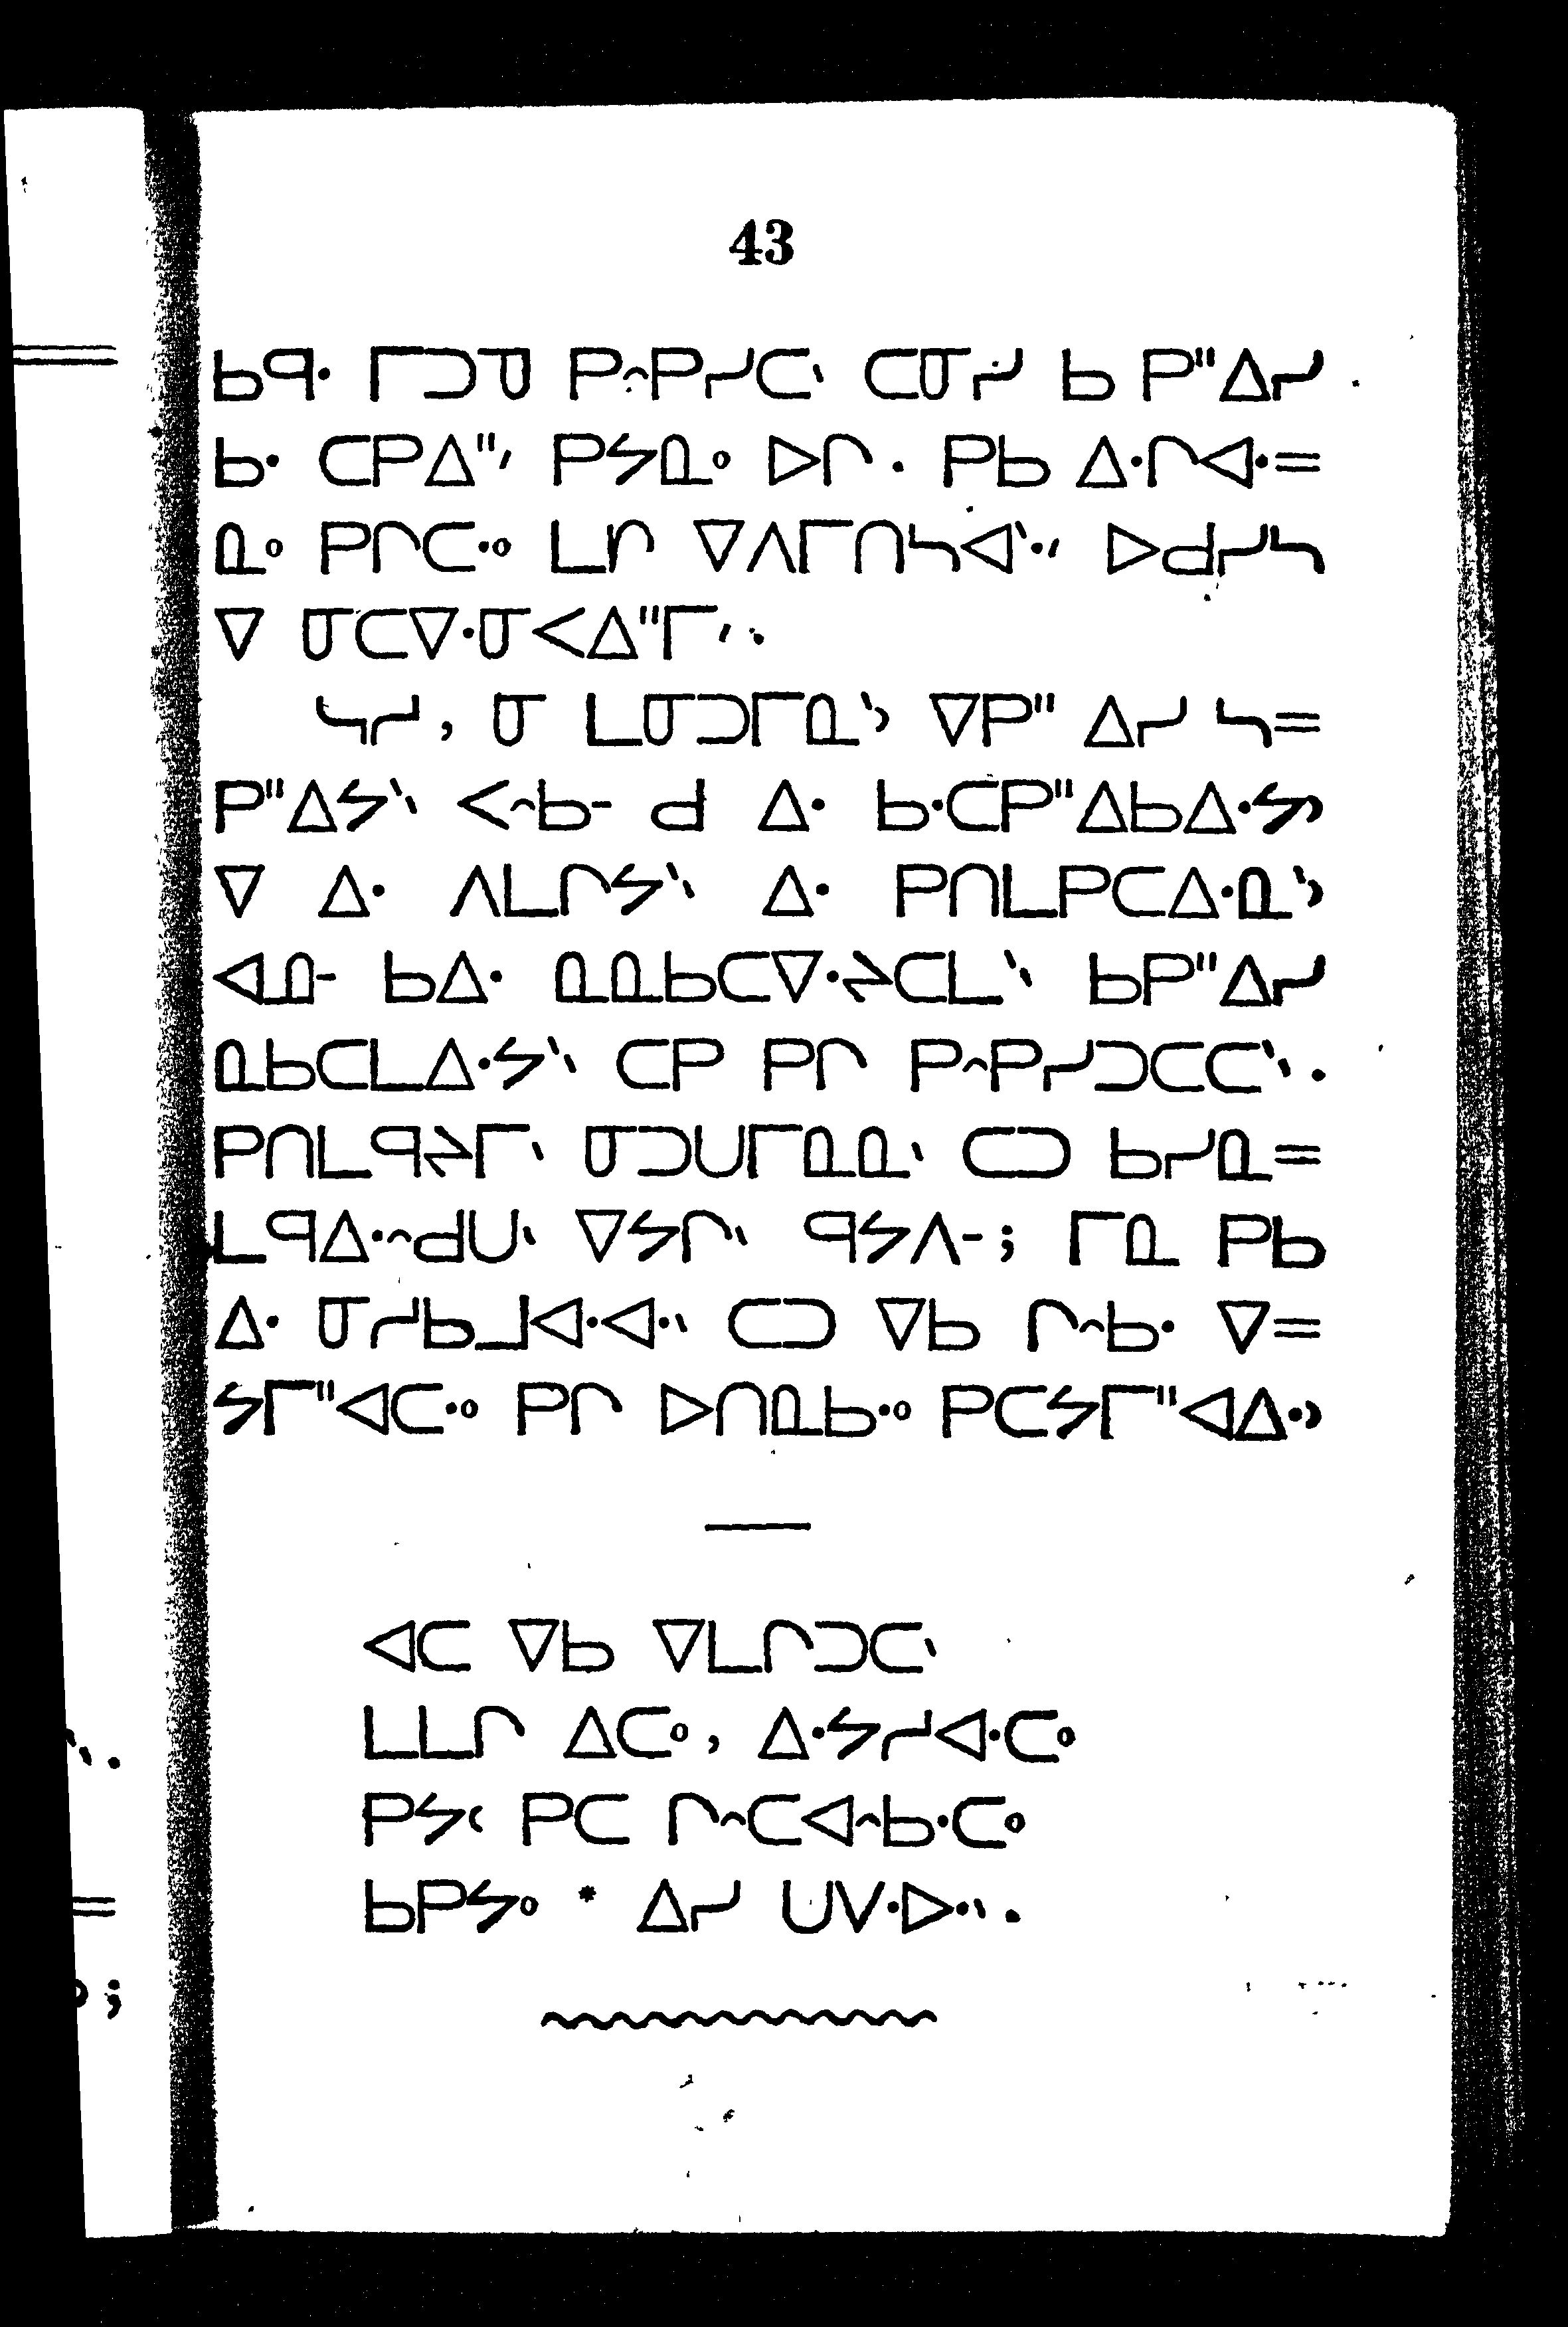 43
ᑲᑫᐧ ᒥᑐᓀ ᑭᐢᑭᓯᑕᐠ ᑕᓂᓯ ᑲ ᑭᐦᐃᓯ
ᑲᐧ ᑕᑭᐃᐦᐟ ᑭᔕᓇᐤ ᐅᒋ . ᑭᑲ ᐃᐧᒋᐊᐧ=
ᓇᐤ ᑭᒋᑕᐧᐤ ᒪᒋ ᐁᐱᒥᑎᓴᐊᐧᐟ ᐅᑯᓯᓴ
ᐁ ᓂᑕᐁᐧᓂᐸᐃᐦᒥᐟ .
ᓴᓯ, ᓂ ᒪᓂᑐᒥᓇᐣ ᐁᑭᐦ ᐃᓯ ᓴ=
ᑭᐦᐃᔕᐠ ᐸᐢᑲᐨ ᑯ ᐃᐧ ᑲᐧᑕᑭᐦᐃᑲᐃᐧᔕᐣ
ᐁ ᐃᐧ ᐱᒪᒋᔕᐠ ᐃᐧ ᑭᑎᒪᑭᑕᐃᐧᓇᐣ
ᐊᓄᐨ ᑲᐃᐧ ᓇᓇᑲᑕᐁᐧᔨᑕᒪᐠ ᑲᑭᐦᐃᓯ
ᓇᑲᑕᒪᐃᐧᔕᐠ ᑕᑭ ᑭᒋ ᑭᐢᑭᓯᑐᑕᑕᐠ .
ᑭᑎᒪᑫᔨᒥᐠ ᓂᑐᑌᒥᓇᓇᐠ ᑕᑐ ᑲᓯᓇ=
ᒪᑫᐃᐧᐢᑯᑌᐠ ᐁᔕᒋᐠ ᑫᔕᐱᐨ ; ᒥᓇ ᑭᑲ
ᐃᐧ ᓂᓯᑲᒧᐊᐧᐊᐧᐠ ᑕᑐ ᐁᑲ ᒋᐢᑲᐧ ᐁ=
ᔕᒥᐦᐊᑕᐧᐤ ᑭᒋ ᐅᑎᓇᑲᐧᐤ ᑭᑕᔕᒥᐦᐊᐃᐧᐣ
ᐊᑕ ᐁᑲ ᐁᒪᒋᑐᑕᐠ
ᒪᒪᒋ ᐃᑕᐤ, ᐃᐧᔕᓯᐊᐧᑕᐤ
ᑭᔕᐸ ᑭᑕ ᒋᐢᑕᐊᐢᑲᐧᑕᐤ
ᑲᑭᔕᐤ * ᐃᓯ ᑌᐯᐧᐅᐧᐠ .